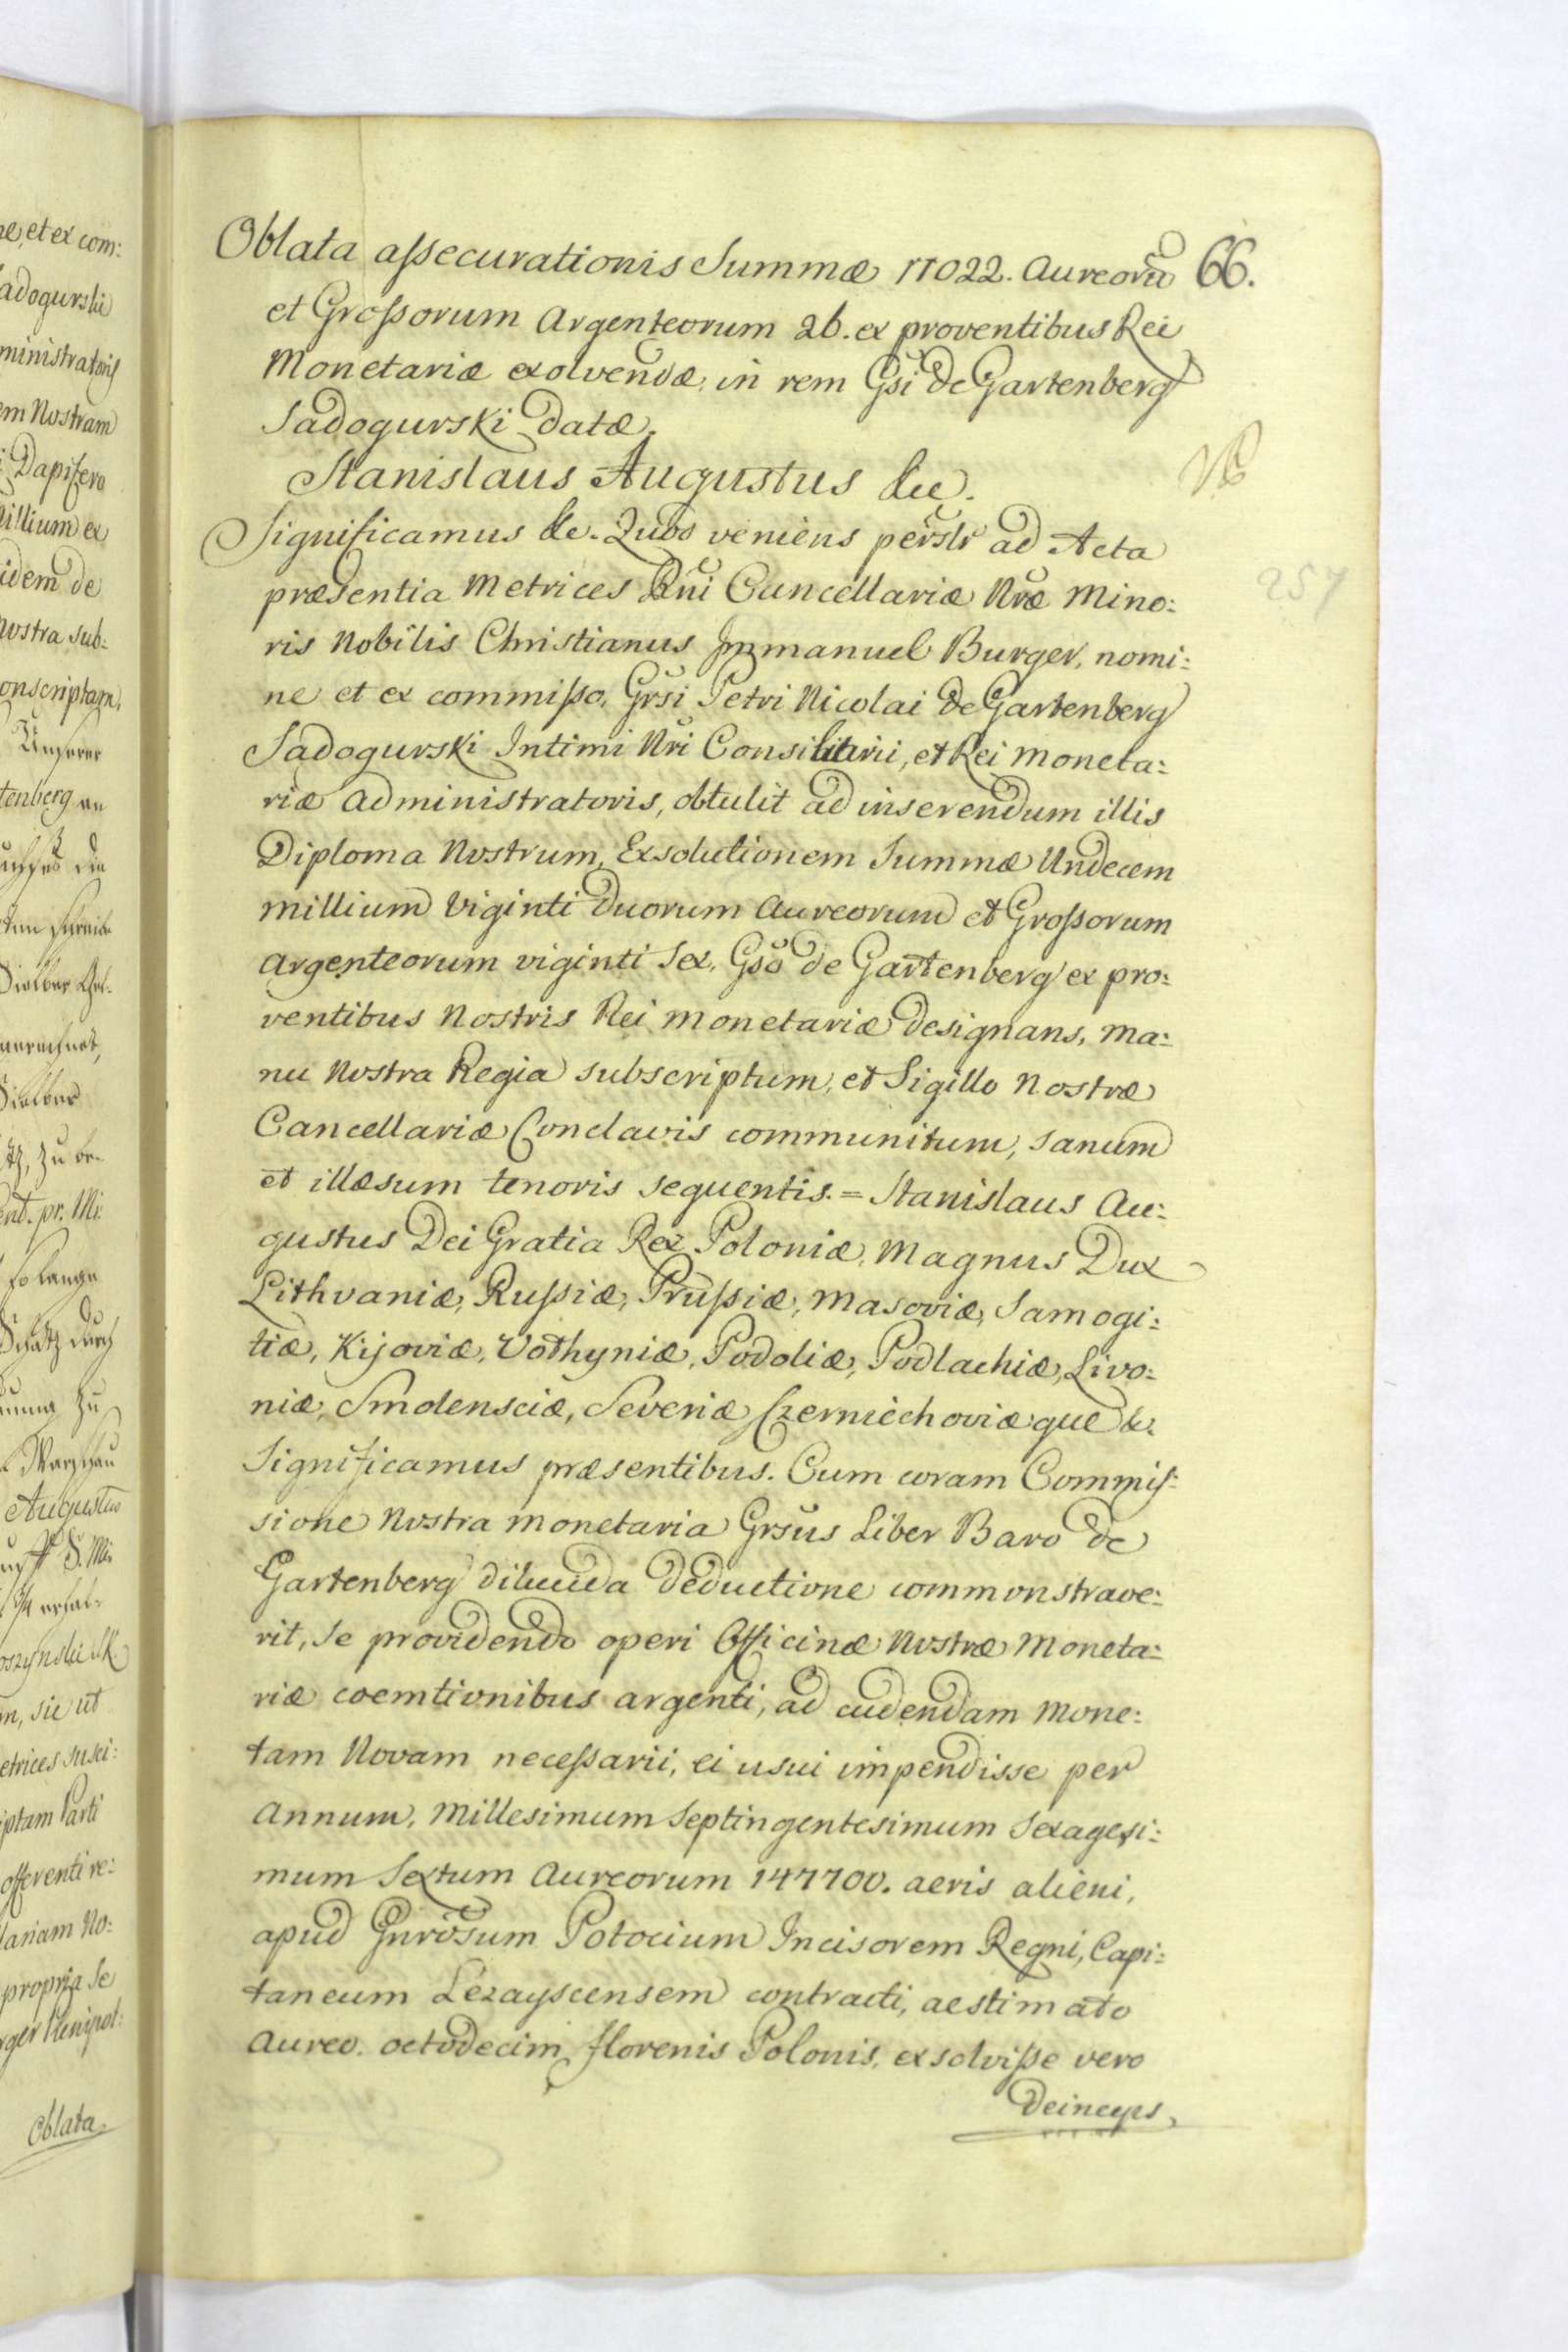 Oblata assecurationis Summæ 11022. Aureorũ 66.
et Grossorum Argenteorum 26. ex proventibus Rei
Monetariæ exolvendæ, in rem Gsi de Gartenberg
Sadogurski datæ.
Stanislaus Augustus &c.
Significamus &c. Quod veniens persłr ad Acta
præsentia Metrices Rni Cancellariæ Nræ Mino:
ris Nobilis Christianus Immanuel Burger, nomi:
ne et ex commisso, Grsi Petri Nicolai de Gartenberg
Sadogurski Intimi Nri Consiliarii, et Rei Moneta:
riæ Administratoris, obtulit ad inserendum illis
Diploma Nostrum, Exsolutionem Summæ Undecem
Millium Viginti Duorum Aureorum et Grossorum
Argenteorum viginti Sex, Gso de Gartenberg ex pro:
ventibus Nostris Rei Monetariæ designans, Ma:
nu Nostra Regia subscriptum, et Sigillo Nostræ
Cancellariæ Conclavis communitum, sanum
et illæsum tenoris sequentis. = Stanislaus Au:
gustus Dei Gratia Rex Poloniæ, Magnus Dux
Lithvaniæ, Russiæ, Prussiæ, Masoviæ, Samogi:
tiæ, Kijoviæ, Vołhyniæ, Podoliæ, Podlachiæ, Livo:
niæ, Smolensciæ, Severiæ Czerniechoviæque &.
Significamus præsentibus. Cum coram Commis:
sione Nostra Monetaria Grsus Liber Baro de
Gartenberg dilucida deductione commonstrave:
rit, se providendo operi Officinæ Nostræ Moneta:
riæ coemtionibus argenti, ad cudendam Mone:
tam Novam necessarii, ei usui impendisse per
Annum, Millesimum Septingentesimum Sexagesi:
mum Sextum Aureorum 147700. aeris alieni,
apud Gnrosum Potocium Incisorem Regni, Capi:
taneum Lezayscensem contracti, aestimato
Aureo octodecim florenis Polonis, exsolvisse vero
Deinceps,
257
ne, et ex com:
adogurski
ministratoris
em Nostram
Dapifero
Millium ex
idem de
Nostra sub:
onscriptam,
Unserer
tenberg an
Warschau
Augustus
n, sic ut
etrices susci:
iptam Parti
offerenti re:
lariam No:
propria se
rger Plenipot:
Oblata